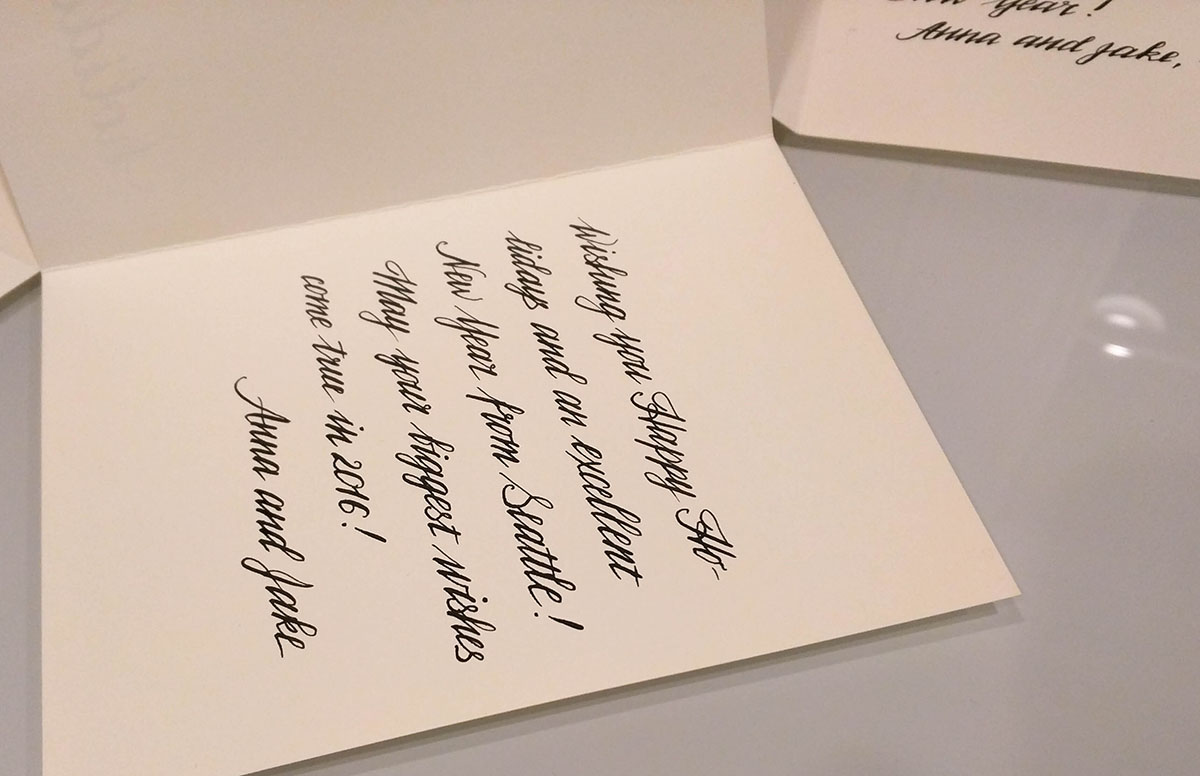 Wishing you Happy Ho-
lidays and an excellent
New Year from Seattle!
May your biggest wishes
come true in 2016!
Anna and Jake
Year!
Anna and Jake,